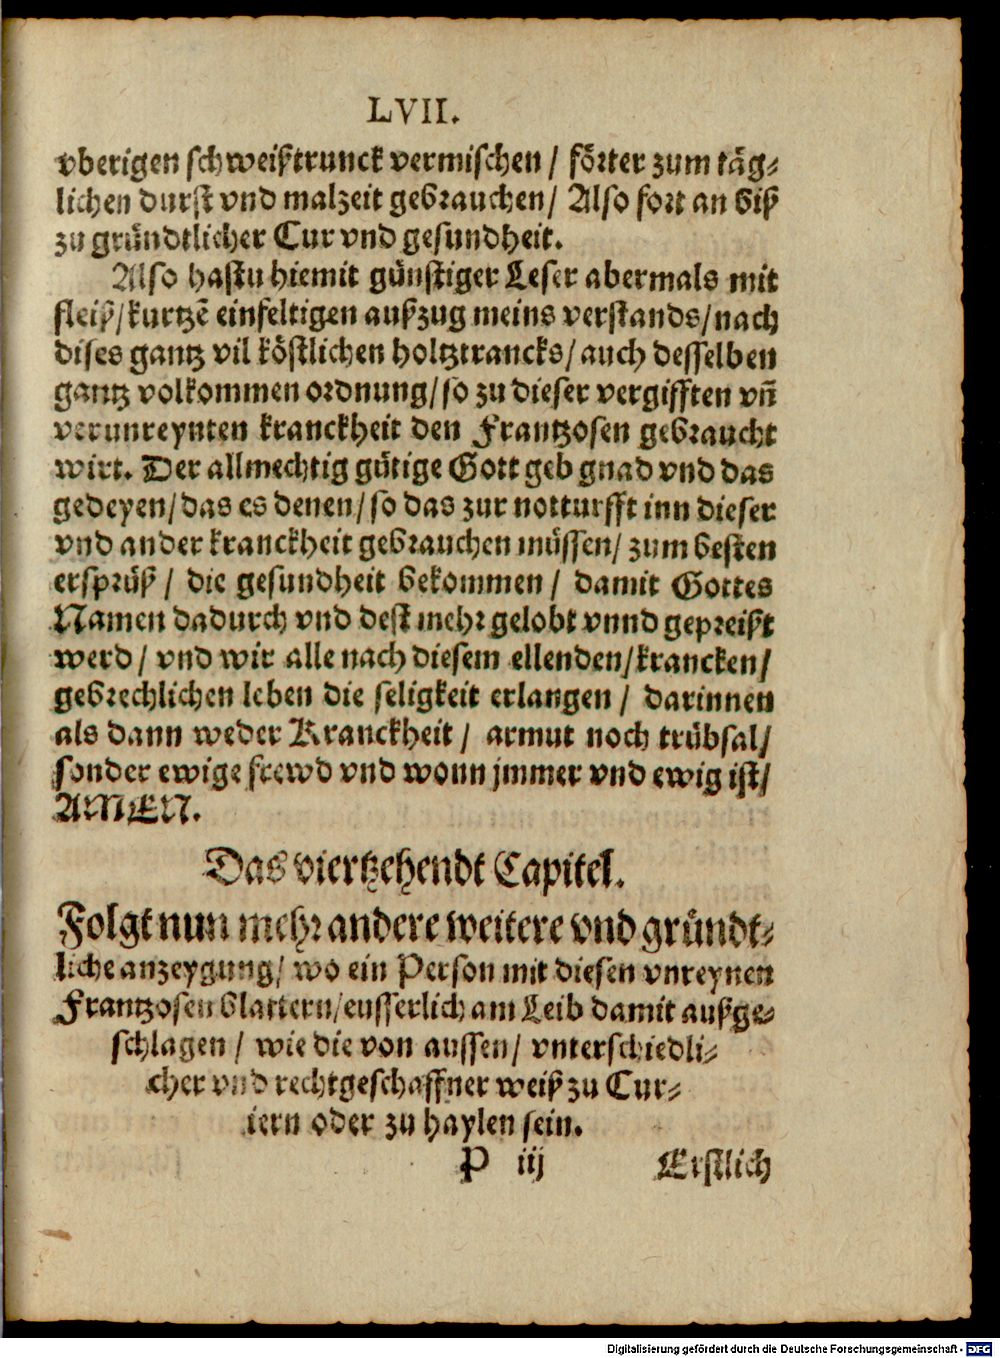 LVII.
vberigen schweißtrunck vermischen /förter zum täg⸗
lichen durst vnd malzeit gebrauchen / Also fort an biß
zu gründtlicher Cur vnd gesundheit.
Also hastu hiemit günstiger Leser abermals mit
fleiß / kurtzē einfeltigen außzug meins verstands / nach
dises gantz vil köstlichen holtztrancks / auch desselben
gantz volkommen ordnung / so zu dieser vergifften vñ
verunreynten kranckheit den Frantzosen gebraucht
wirt. Der allmechtig gütige Gott geb gnad vnd das
gedeyen / das es denen / so das zur notturfft inn dieser
vnd ander kranckheit gebrauchen müssen / zum besten
ersprüß / die gesundheit bekommen / damit Gottes
Namen dadurch vnd dest mehr gelobt vnnd gepreißt
werd / vnd wir alle nach diesem ellenden / krancken /
gebrechlichen leben die seligkeit erlangen / darinnen
als dann weder Kranckheit / armut noch trübsal /
sonder ewige frewd vnd wonn jmmer vnd ewig ist /
AMEN.
Das viertzehendt Capitel.
Folgt nun mehr andere weitere vnd gründt⸗
liche anzeygung / wo ein Person mit diesen vnreynen
Frantzosen blattern / eusserlich am Leib damit außge⸗
schlagen / wie die von aussen / vnterschiedli⸗
cher vnd rechtgeschaffner weiß zu Cur⸗
iern oder zu haylen sein.
P iij Erstlich
Digitalisierung gefördert durch die Deutsche Forschungsgemeinschaft - DFG